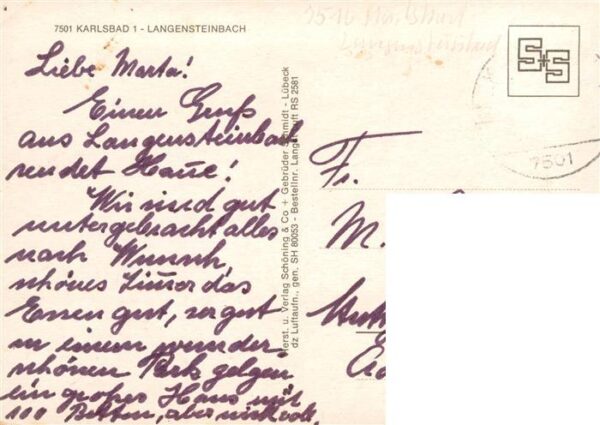 7501 KARLSBAD 1 - LANGENSTEINBACH
Liebe Marta!
Einen Gruß
aus Langensteinbach
sendet Hane!
Wir sind gut
untergebracht alles
nach Wunsch,
schönes Zimmer das
Essen gut, so gut
in einem wunder-
schönen Park gelgen
ein großes Haus mit
100 Betten, aber nicht voll.
Herst. u. Verlag Schöning & Co + Gebrüder Schmidt - Lübeck
dz Luftaufn., gen. SH 80053 - Bestellnr. Langen RS 2581
S+S
7501
Fr.
M.